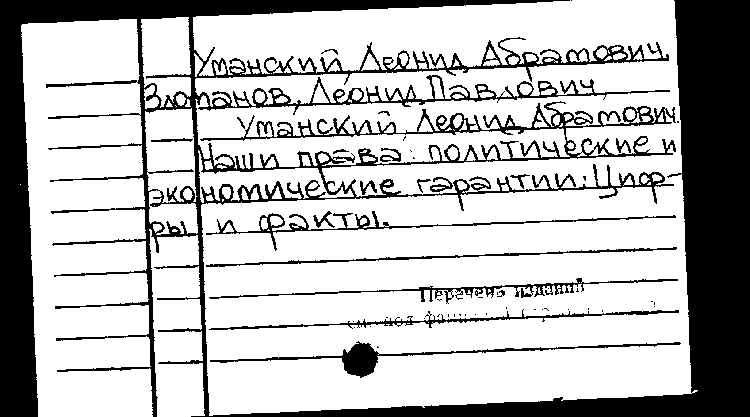 Уманский, Леонид Абрамович.
Злотанов, Леонид Павлович,
Уманский, Леонид Абрамович.
Наши права: политические и
экономические гарантии: Циф-
ры и факты.
Перечень изданий
см. под